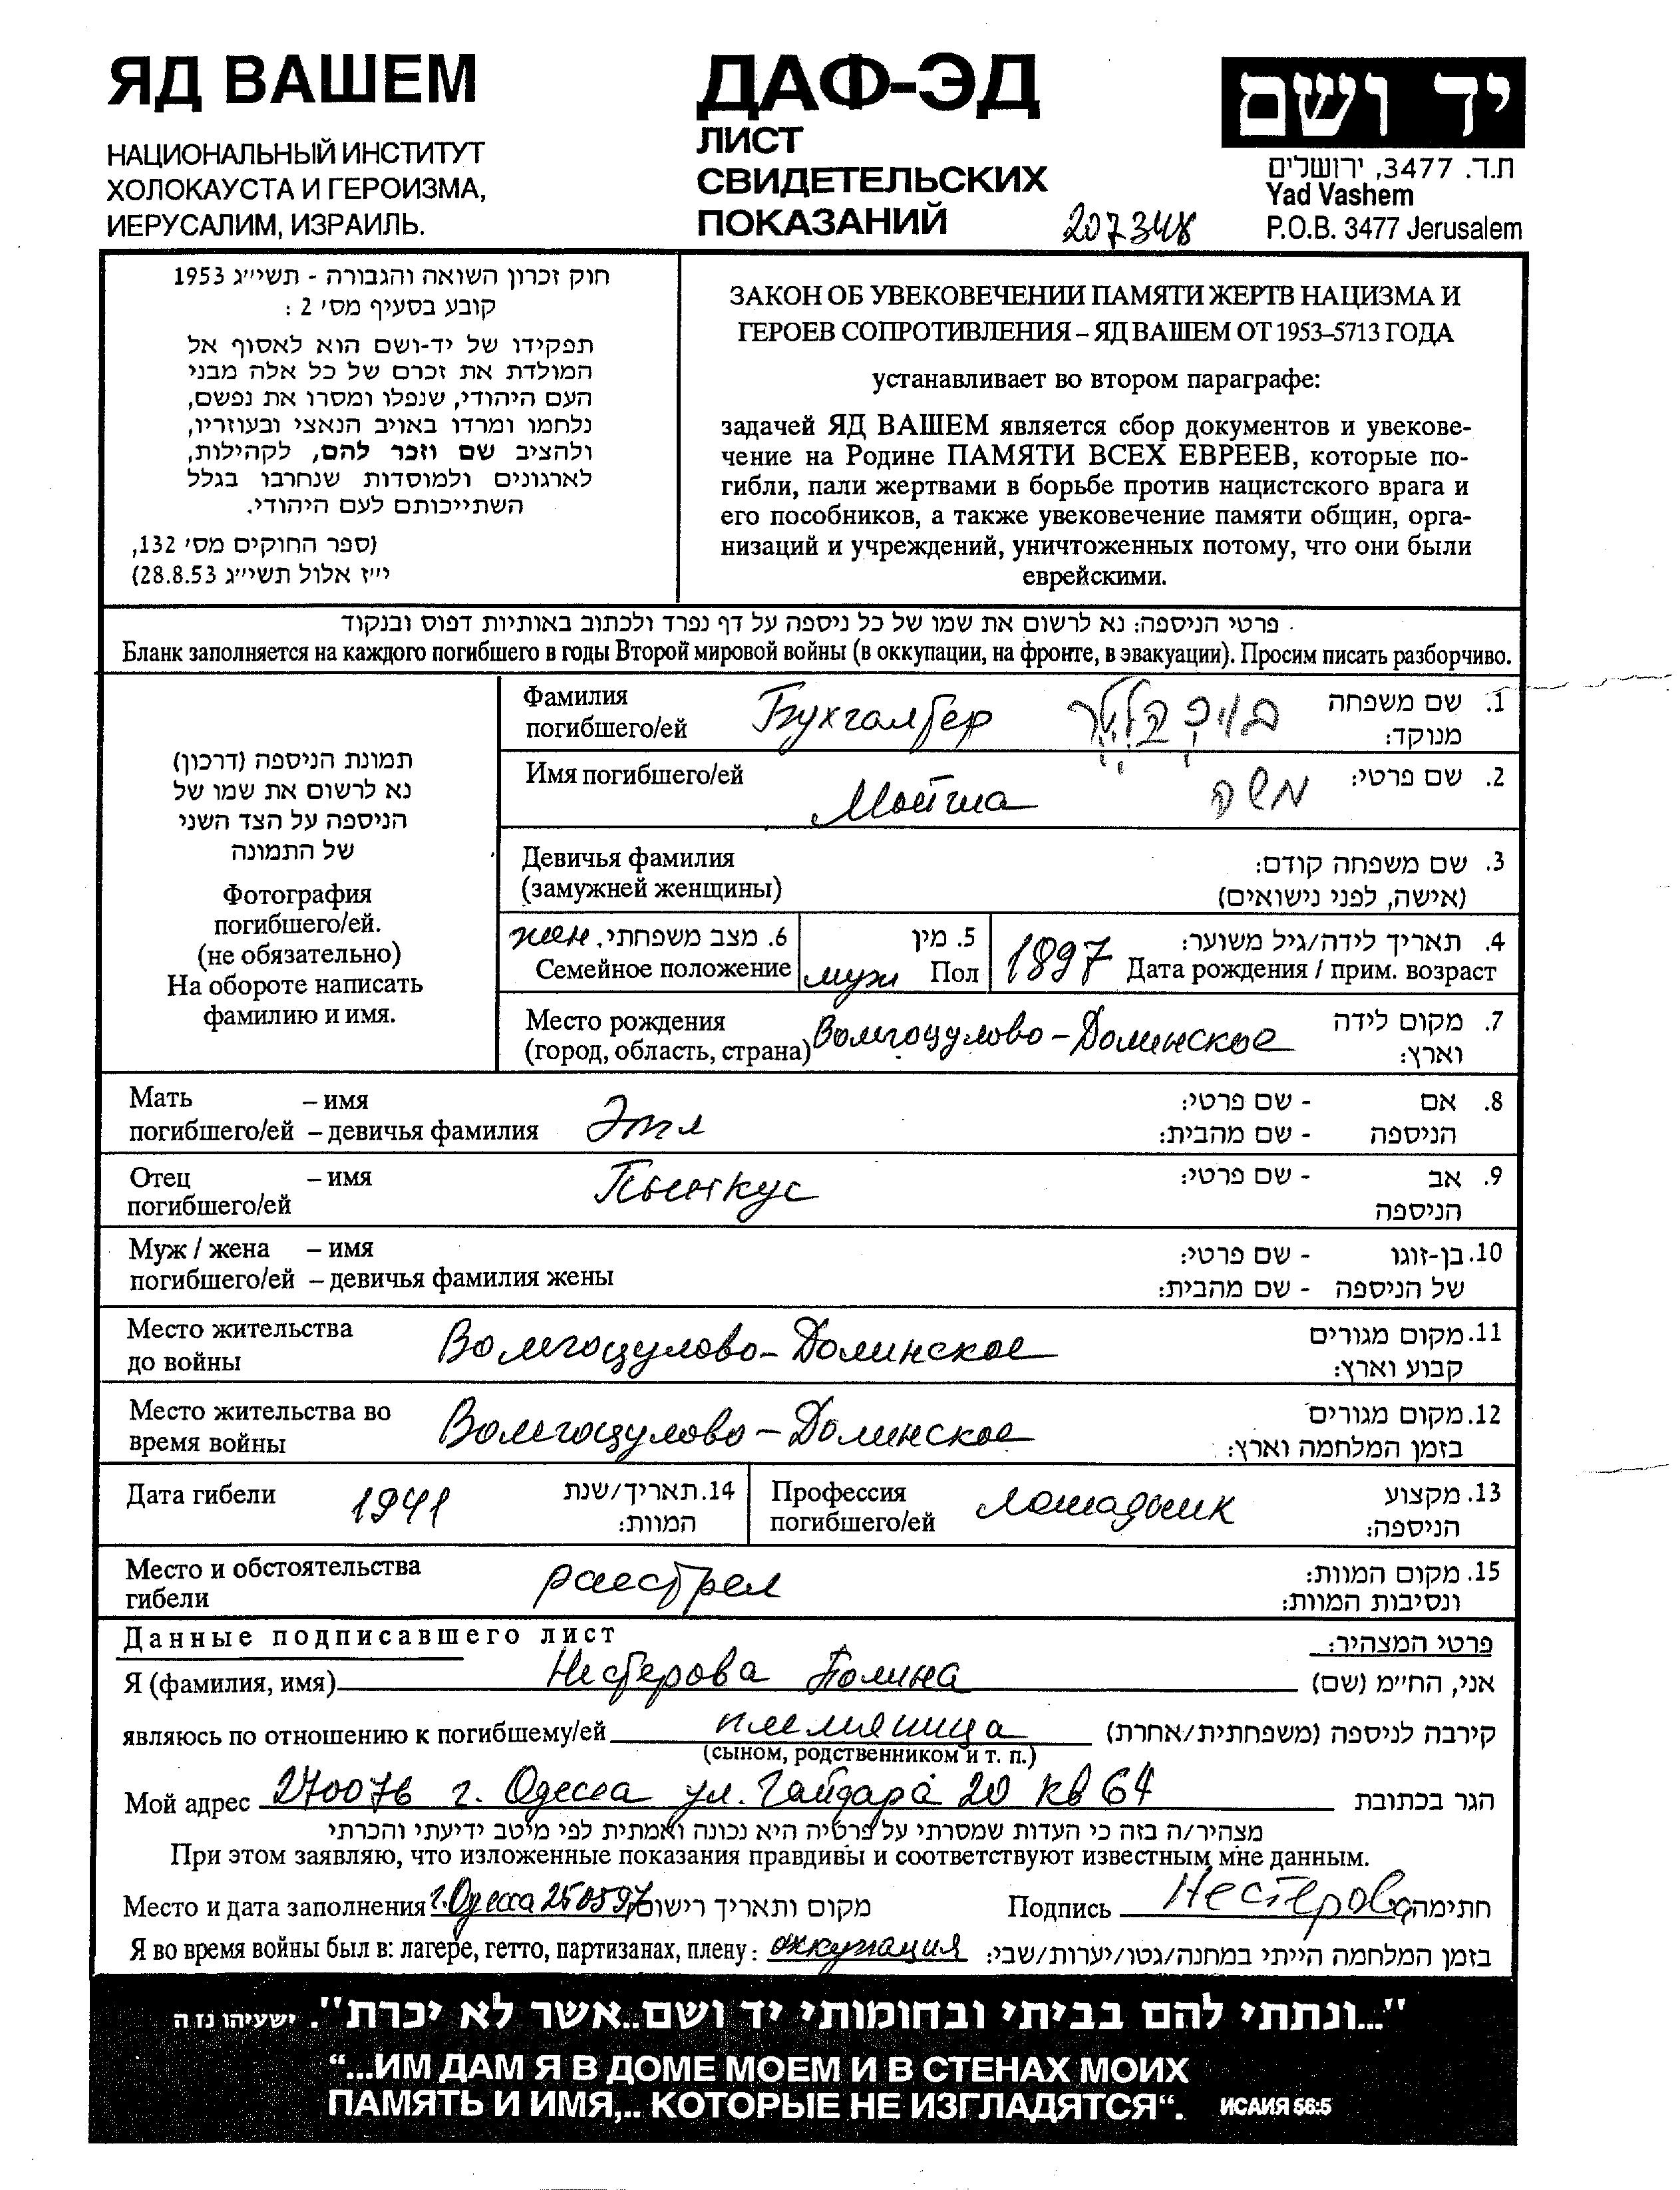 ЯД ВАШЕМ
НАЦИОНАЛЬНЫЙ ИНСТИТУТ
ХОЛОКАУСТА И ГЕРОИЗМА,
ИЕРУСАЛИМ, ИЗРАИЛЬ.
ДАФ-ЭД
ЛИСТ
СВИДЕТЕЛЬСКИХ
ПОКАЗАНИЙ
207348
יד ושם
ת.ד. 3477, ירושלים
Yad Vashem
P.O.B. 3477 Jerusalem
חוק זכרון השואה והגבורה - תשי״ג 1953
קובע בסעיף מס׳ 2 :
תפקידו של יד-ושם הוא לאסוף אל
המולדת את זכרם של כל אלה מבני
העם היהודי, שנפלו ומסרו את נפשם,
נלחמו ומרדו באויב הנאצי ובעוזריו,
ולהציב שם וזכר להם, לקהילות,
לארגונים ולמוסדות שנחרבו בגלל
השתייכותם לעם היהודי.
(ספר החוקים מס׳ 132,
י״ז אלול תשי״ג 28.8.53)
ЗАКОН ОБ УВЕКОВЕЧЕНИИ ПАМЯТИ ЖЕРТВ НАЦИЗМА И
ГЕРОЕВ СОПРОТИВЛЕНИЯ – ЯД ВАШЕМ ОТ 1953–5713 ГОДА
устанавливает во втором параграфе:
задачей ЯД ВАШЕМ является сбор документов и увекове-
чение на Родине ПАМЯТИ ВСЕХ ЕВРЕЕВ, которые по-
гибли, пали жертвами в борьбе против нацистского врага и
его пособников, а также увековечение памяти общин, орга-
низаций и учреждений, уничтоженных потому, что они были
еврейскими.
פרטי הניספה: נא לרשום את שמו של כל ניספה על דף נפרד ולכתוב באותיות דפוס ובנקוד
Бланк заполняется на каждого погибшего в годы Второй мировой войны (в оккупации, на фронте, в эвакуации). Просим писать разборчиво.
תמונת הניספה (דרכון)
נא לרשום את שמו של
הניספה על הצד השני
של התמונה
Фотография
погибшего/ей.
(не обязательно)
На обороте написать
фамилию и имя.
Фамилия
погибшего/ей Бухгалтер
1. שם משפחה
מנוקד:
Имя погибшего/ей Мойша משה 2. שם פרטי:
Девичья фамилия 3. שם משפחה קודם:
(замужней женщины) (אישה, לפני נישואים)
жен. 6. מצב משפחתי
Семейное положение
5. מין
муж Пол
4. תאריך לידה/גיל משוער:
1897 Дата рождения / прим. возраст
Место рождения 7. מקום לידה
(город, область, страна) Волгоцулово-Долинское וארץ:
Мать – имя 8. אם - שם פרטי:
погибшего/ей – девичья фамилия Этл הניספה - שם מהבית:
Отец – имя Пынкус 9. אב - שם פרטי:
погибшего/ей הניספה
Муж / жена – имя 10. בן-זוגו - שם פרטי:
погибшего/ей – девичья фамилия жены של הניספה - שם מהבית:
Место жительства 11. מקום מגורים
до войны Волгоцулово-Долинское קבוע וארץ:
Место жительства во 12. מקום מגורים
время войны Волгоцулово-Долинское בזמן המלחמה וארץ:
Дата гибели 1941 14. תאריך/שנת
המוות:
Профессия 13. מקצוע
погибшего/ей лошадник הניספה:
Место и обстоятельства 15. מקום המוות:
гибели расстрел ונסיבות המוות:
Данные подписавшего лист פרטי המצהיר:
Я (фамилия, имя) Нестерова Полина אני, החי״מ (שם)
являюсь по отношению к погибшему/ей племяница קירבה לניספה (משפחתית/אחרת)
(сыном, родственником и т. п.)
Мой адрес 270076 г. Одесса ул. Гайдара 20 кв 64 הגר בכתובת
מצהיר/ה בזה כי העדות שמסרתי על פרטיה היא נכונה ואמתית לפי מיטב ידיעתי והכרתי
При этом заявляю, что изложенные показания правдивы и соответствуют известным мне данным.
Место и дата заполнения г. Одесса 250597 מקום ותאריך רישום Подпись Нестерова חתימה
Я во время войны был в: лагере, гетто, партизанах, плену: оккупация בזמן המלחמה הייתי במחנה/גטו/יערות/שבי:
"...ונתתי להם בביתי ובחומותי יד ושם...אשר לא יכרת". ישעיהו נז ה
“...ИМ ДАМ Я В ДОМЕ МОЕМ И В СТЕНАХ МОИХ
ПАМЯТЬ И ИМЯ,.. КОТОРЫЕ НЕ ИЗГЛАДЯТСЯ“. ИСАИЯ 56:5